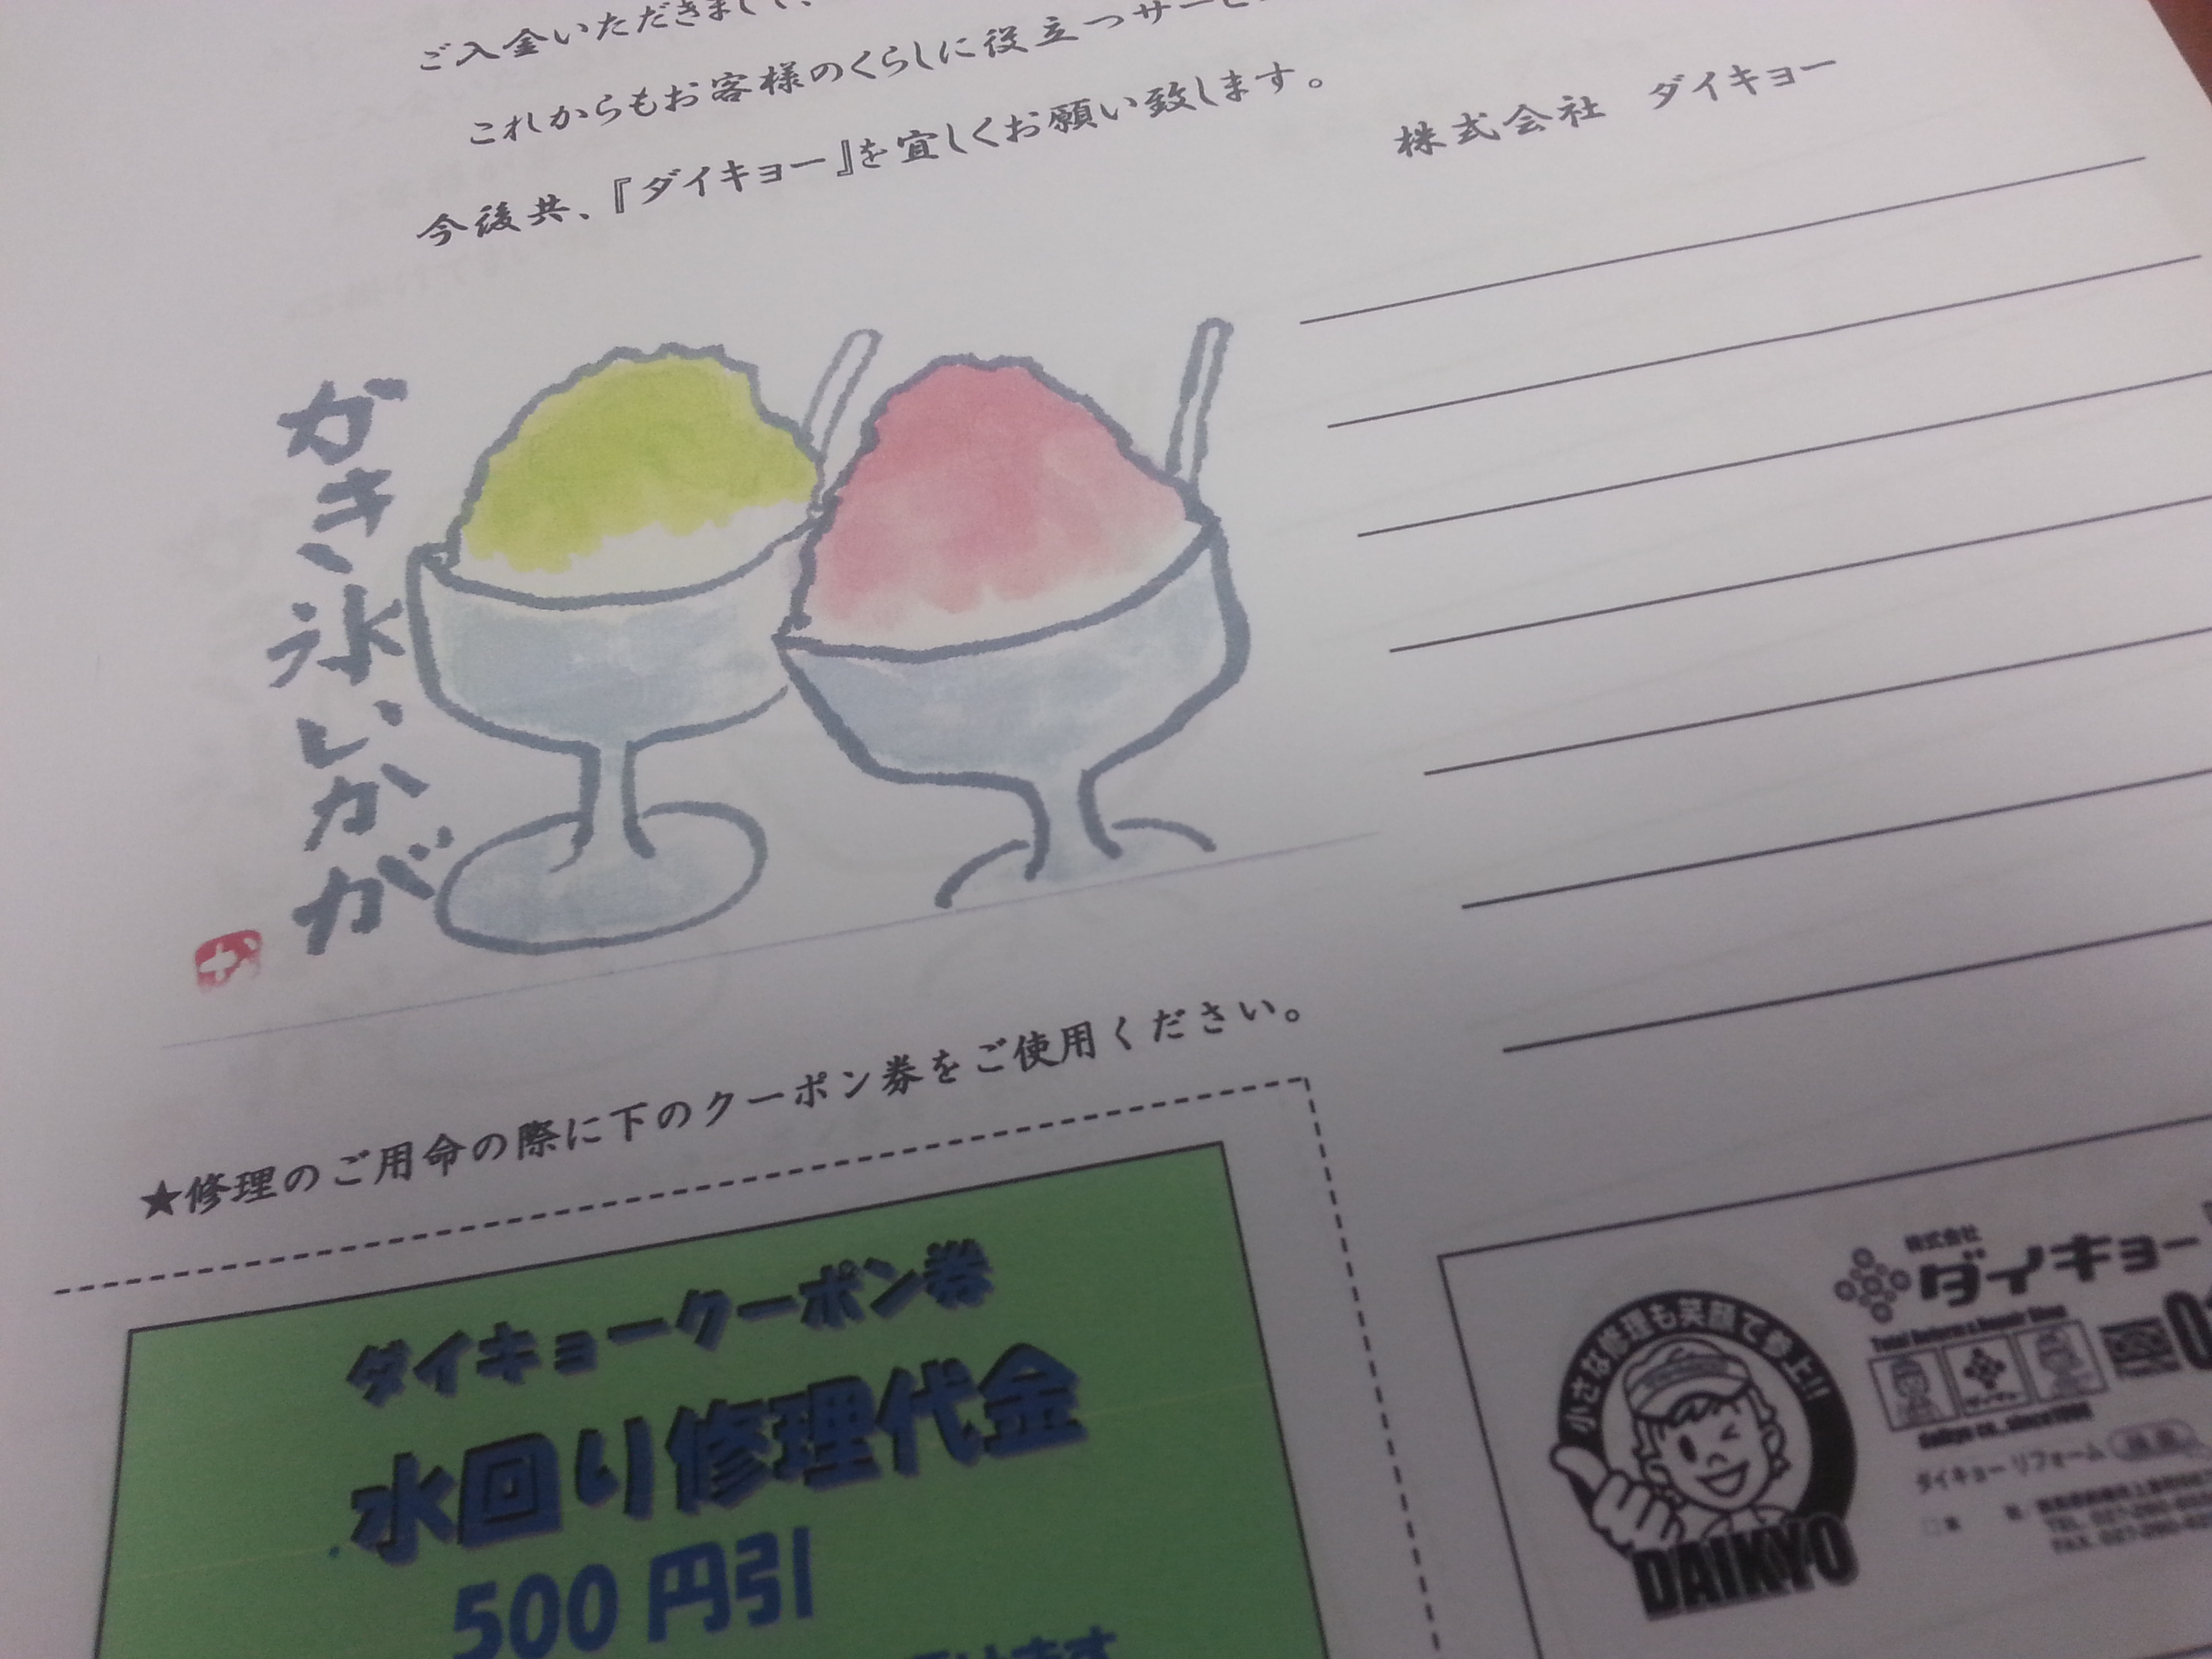 ご入金いただきまして、
これからもお客様のくらしに役立つサービ
今後共、『ダイキョー』を宜しくお願い致します。
株式会社 ダイキョー
かき氷いかが
★修理のご用命の際に下のクーポン券をご使用ください。
ダイキョークーポン券
水回り修理代金
500円引
小さな修理も笑顔で参上!!
DAIKYO
株式会社
ダイキョー
Total Reform & Repair Shop
Daikyo co., since
ダイキョー リフォーム 検索
TEL
FAX